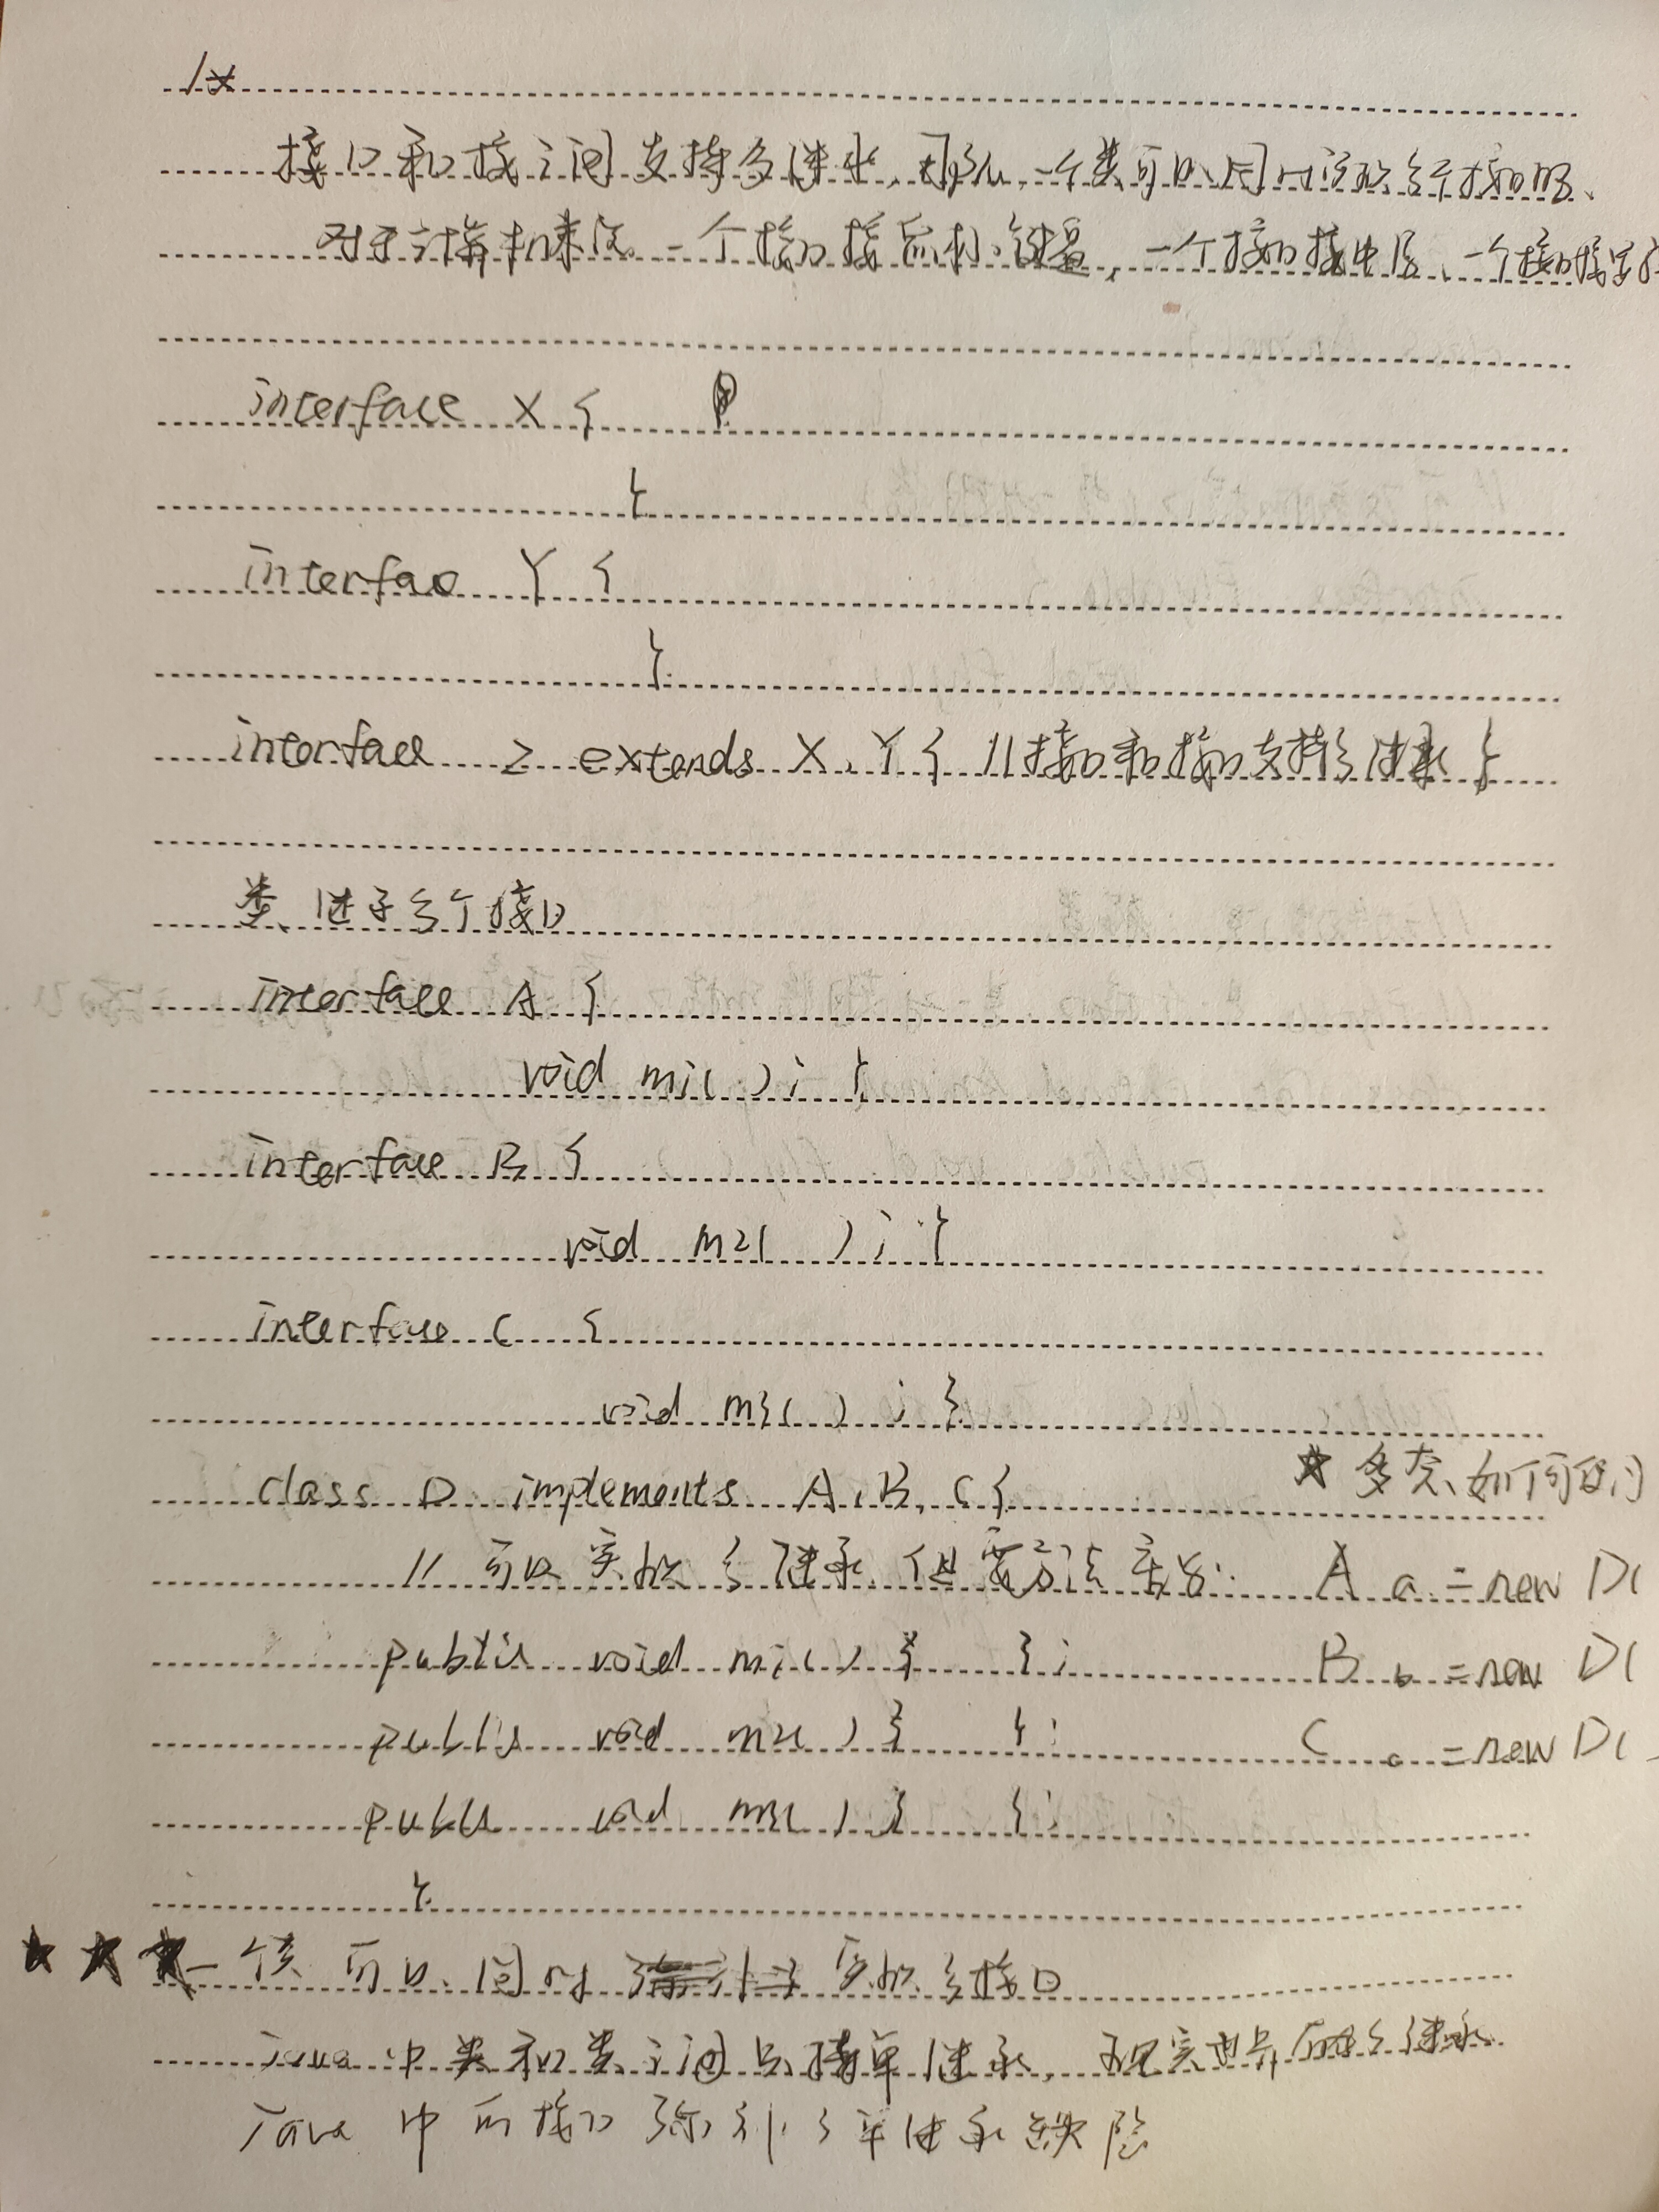 /*
接口和接之间支持多继承,那么一个类可以同时实现多个接口吗、
对于计算机来说 一个接口接 键盘,一个接口接电 、一个接口接
interface X {
}
interface Y {
}
interface Z extends X、Y { //接口和接口支持多继承 }
类、继承多个接口
interface A {
void m1( ); }
interface B {
void m2( ); }
interface C {
void m3( ); }
class D implements A、B、C {
★ 多态、如何
// 可以实现多继承、但需方法重
A a = new D(
public void m1( ) { };
B b = new D(
public void m2( ) { };
C c = new D(
public void m3( ) { };
}
★ ★ ★ 一个类 可以、同时 实现多接口
Java 中类和类之间只支持单继承,现实世界 多继承
Java 中 接口 弥补了单继承缺陷